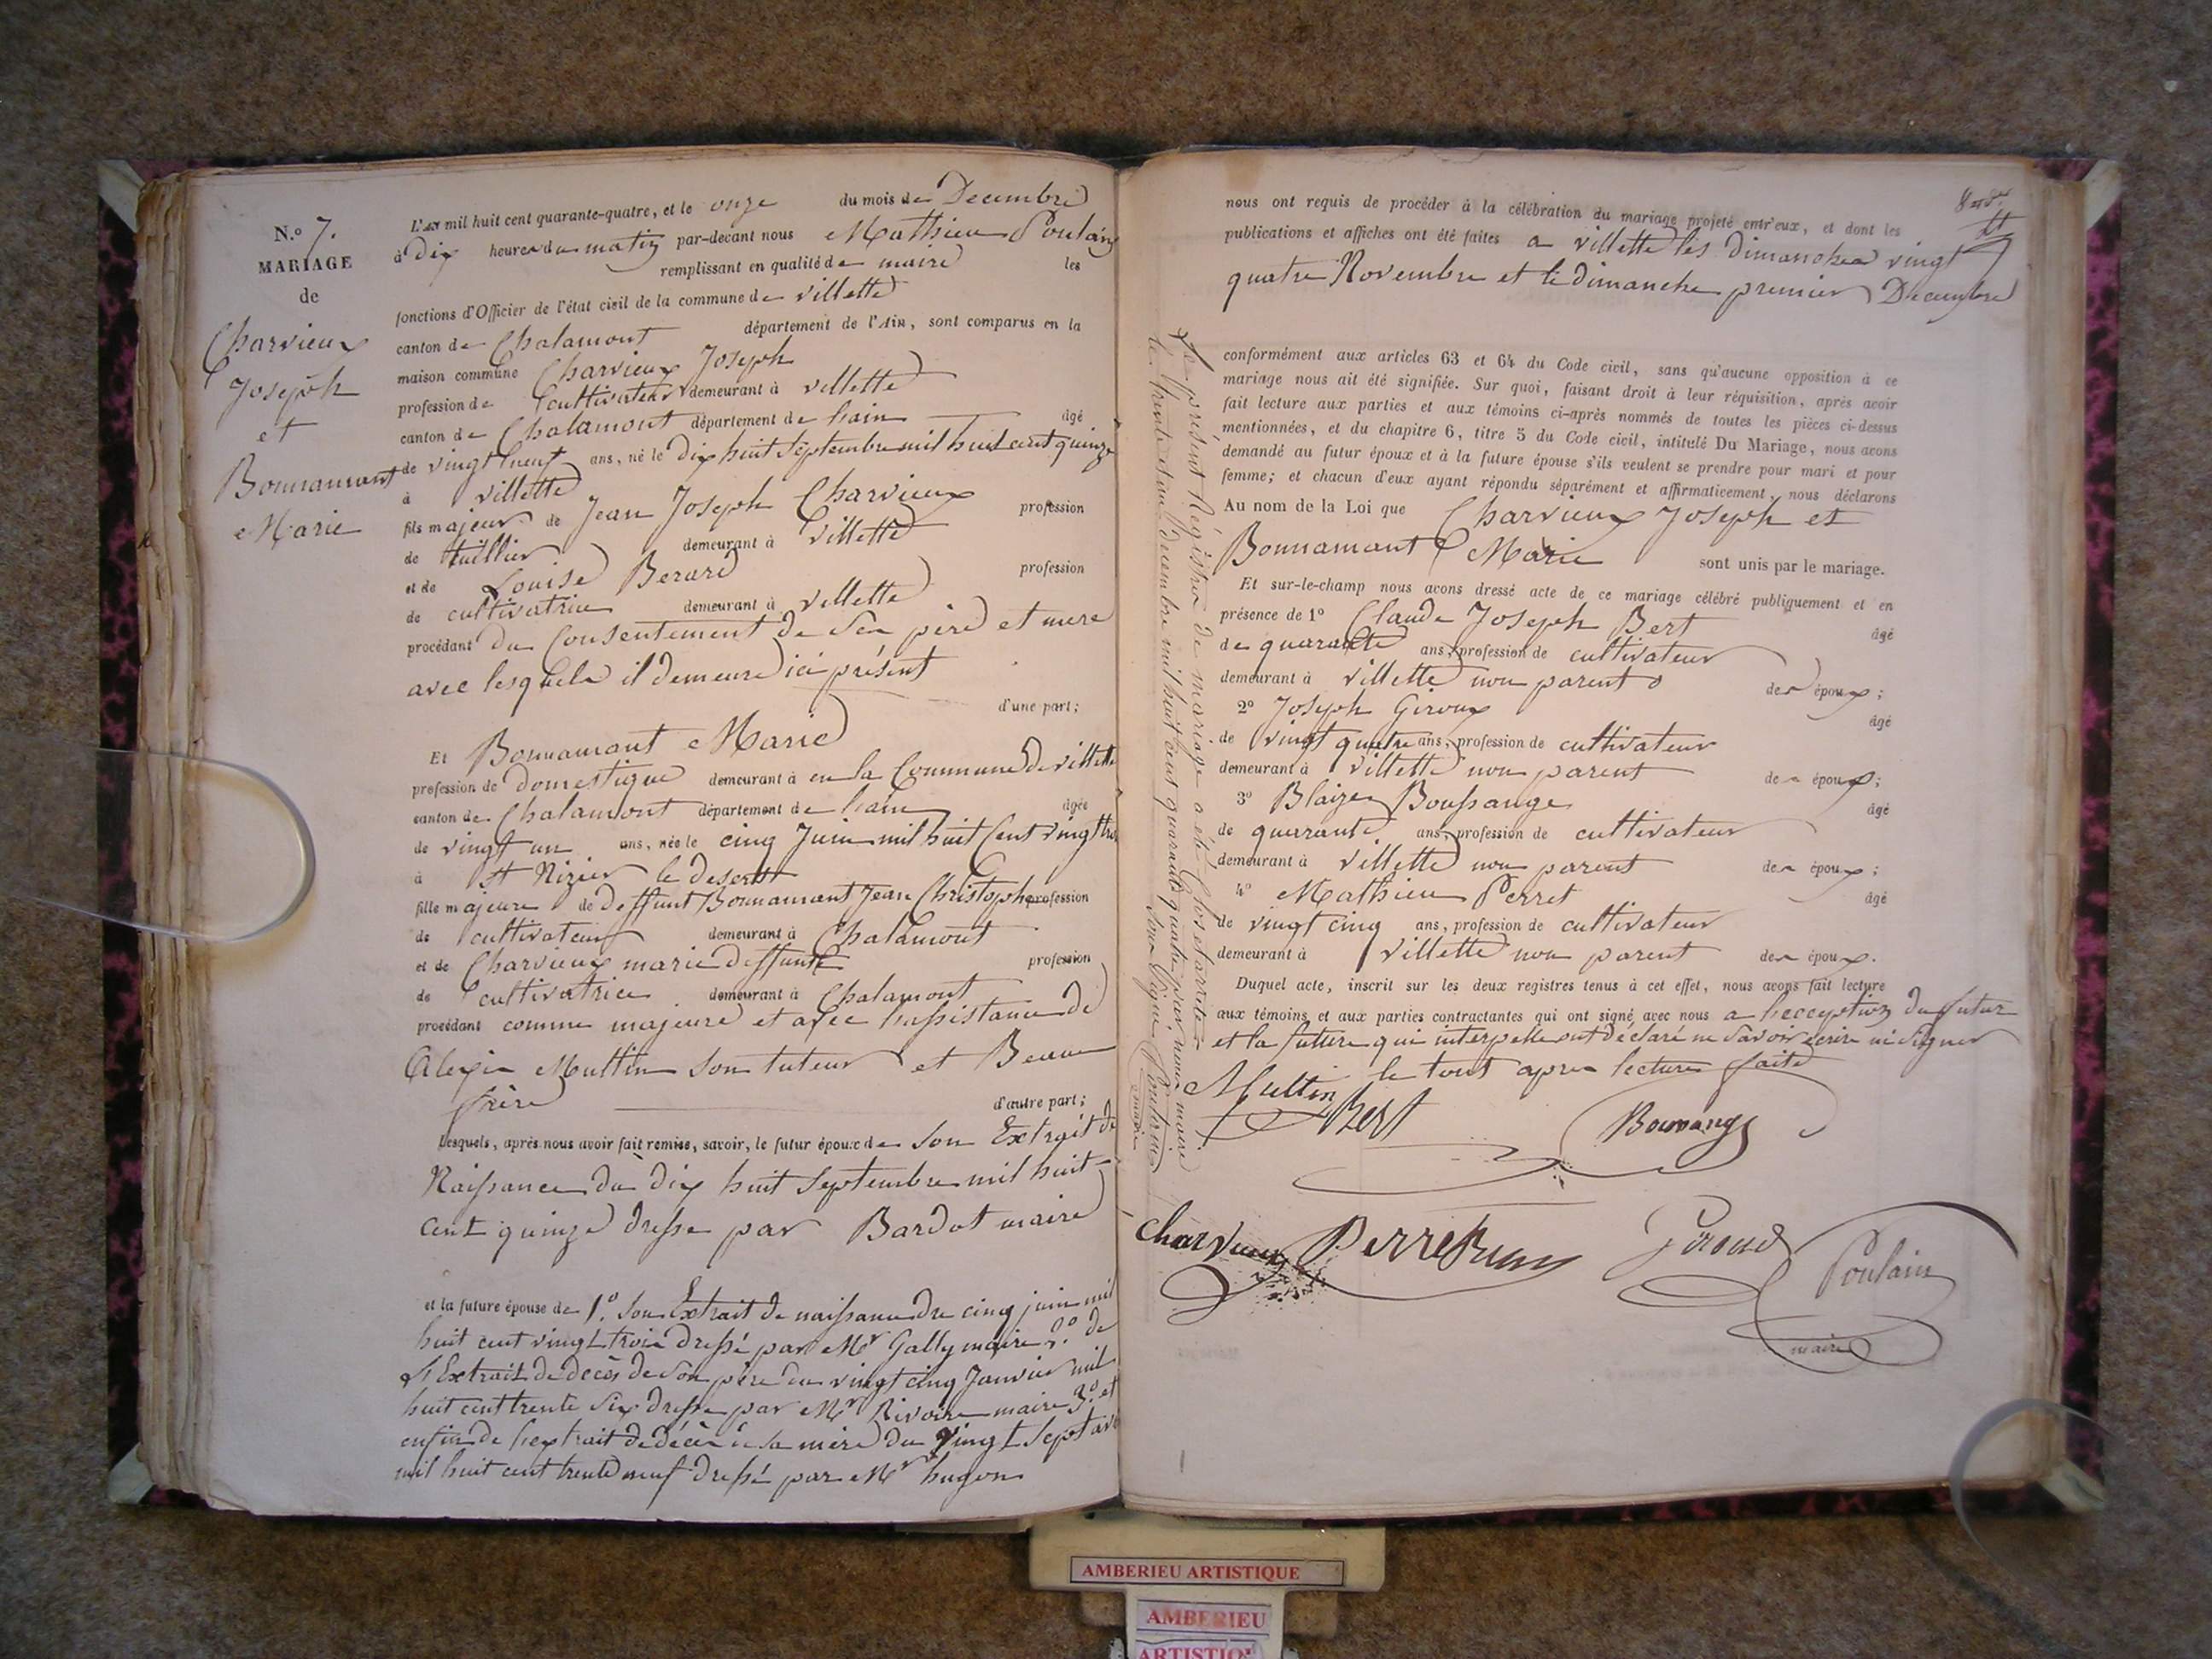 N.o 7.
MARIAGE
de
Charvieux
Joseph
et
Bonnamant
Marie
L'an mil huit cent quarante-quatre, et le onze du mois de Decembre
à Dix heures du matin par-devant nous Mathieu Poulain
remplissant en qualité de maire les
fonctions d'Officier de l'état civil de la commune de villette
canton de Chalamont département de l'Ain, sont comparus en la
maison commune Charvieux Joseph
profession de cultivateur demeurant à villette
canton de Chalamont département de lain âgé
de vingt neuf ans, né le Dix huit Septembre mil huit cent quinze
à villette
fils majeur de Jean Joseph Charvieux profession
de tuillier demeurant à villette
et de Louise Berard profession
de cultivatrice demeurant à villette
procédant du Consentement de Ses père et mere
avec lesquels il demeure ici présent
d'une part;
Et Bonnamant Marie
profession de Domestique demeurant à en la Commune de villette
canton de Chalamont département de lain âgée
de vingt un ans, née le cinq Juin mil huit Cent vingt trois
à st Nizier le desert
fille majeure de deffunt Bonnamant Jean Christophe profession
de cultivateur demeurant à Chalamont
et de Charvieux marie deffunte profession
de cultivatrice demeurant à Chalamont
procédant comme majeure et avec lassistance de
Alexis Multin Son tuteur et Beau
frère d'autre part;
Lesquels, après nous avoir fait remise, savoir, le futur époux de Son Extrait de
Naissance du dix huit Septembre mil huit
cent quinze dressé par Bardot maire
et la future épouse de 1.o Son Extrait de naissance du cinq juin mil
huit cent vingt trois dressé par Mr Gally maire 2.o de
l'Extrait de decès de Son père du vingt cinq Janvier mil
huit cent trente Six dressé par Mr Rivoire maire 3.o et
enfin de lextrait de décès de sa mère du vingt Sept
mil huit cent trente neuf dressé par Mr hugon
nous ont requis de procéder à la célébration du mariage projeté entr'eux, et dont les
publications et affiches ont été faites a villette les Dimanches vingt
quatre Novembre et le dimanche premier Decembre
conformément aux articles 63 et 64 du Code civil, sans qu'aucune opposition à ce
mariage nous ait été signifiée. Sur quoi, faisant droit à leur réquisition, après avoir
fait lecture aux parties et aux témoins ci-après nommés de toutes les pièces ci-dessus
mentionnées, et du chapitre 6, titre 5 du Code civil, intitulé Du Mariage, nous avons
demandé au futur époux et à la future épouse s'ils veulent se prendre pour mari et pour
femme; et chacun d'eux ayant répondu séparément et affirmativement, nous déclarons
Au nom de la Loi que Charvieux Joseph et
Bonnamant Marie sont unis par le mariage.
Et sur-le-champ nous avons dressé acte de ce mariage célébré publiquement et en
présence de 1o Claude Joseph Bert âgé
de quarante ans, profession de cultivateur
demeurant à villette non parent des époux;
2o Joseph Giroux âgé
de vingt quatre ans, profession de cultivateur
demeurant à villette non parent des époux;
3o Blaize Boussange âgé
de quarante ans, profession de cultivateur
demeurant à villette non parent des époux;
4o Mathieu Perret âgé
de vingt cinq ans, profession de cultivateur
demeurant à villette non parent des époux.
Duquel acte, inscrit sur les deux registres tenus à cet effet, nous avons fait lecture
aux témoins et aux parties contractantes qui ont signé avec nous a lexception du futur
et la future qui interpellé ont déclaré ne Savoir écrire ni Signer
le tout apres lecture faite
Multin
Bert
Charvieux
Giroud
Poulain
maire
Le présent Régistre de mariage a été Clos et arrêté
le trente et un decembre mil huit cent quarante quatre par nous maire
Sous Signé Poulain
maire
AMBERIEU ARTISTIQUE
AMBERIEU